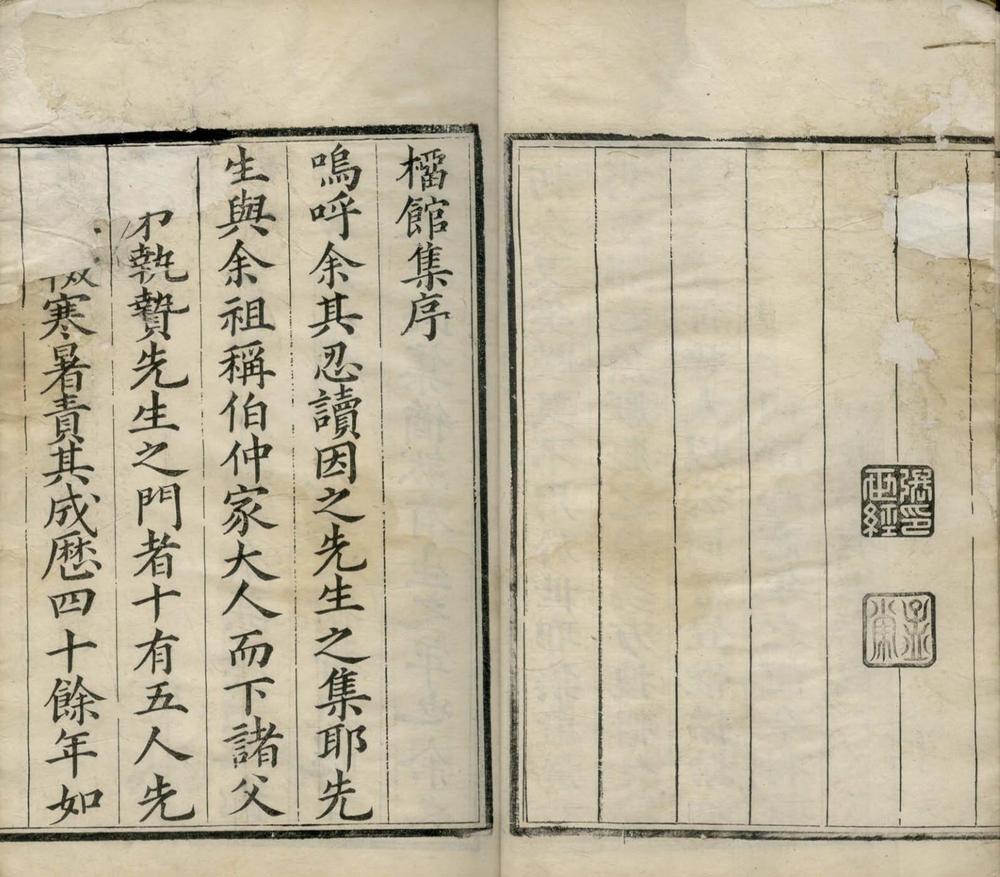 橊館集序
嗚呼余其忍讀因之先生之集耶先
生與余祖稱伯仲家大人而下諸父
執贄先生之門者十有五人先
寒暑責其成歴四十餘年如